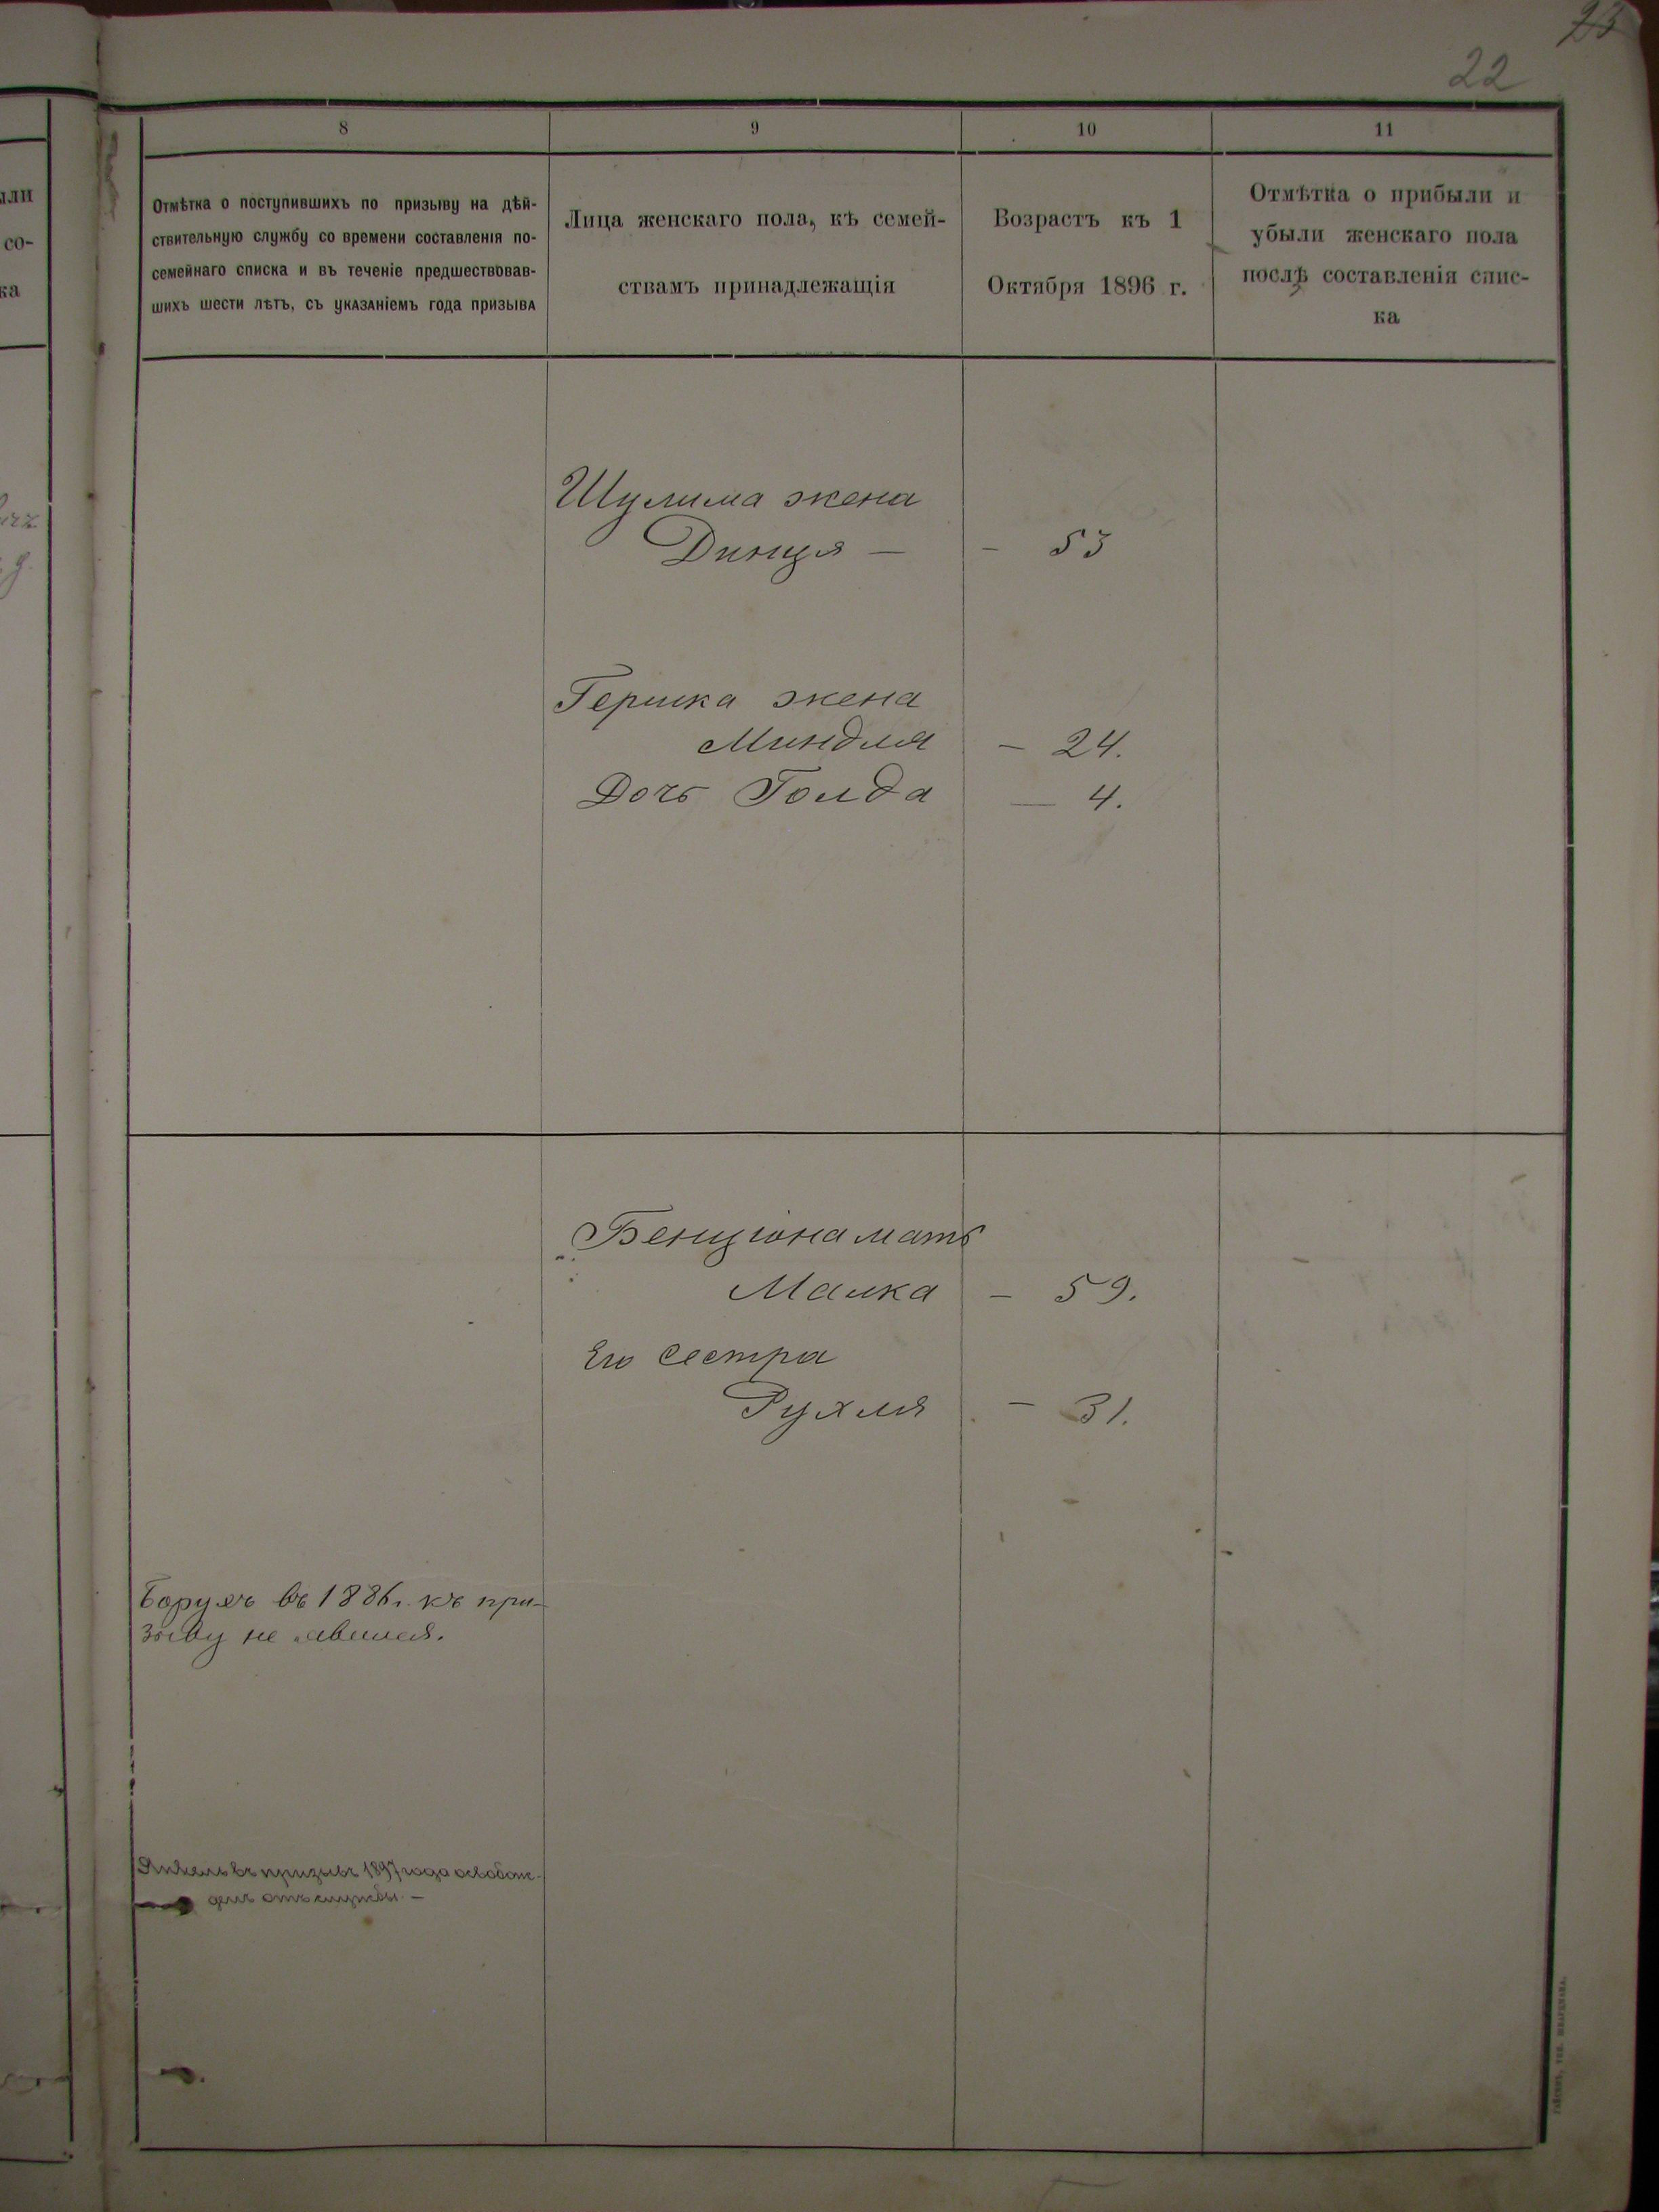 22
8
9
10
11
Отмѣтка о поступившихъ по призыву на дѣй-
ствительную службу со времени составленія по-
семейнаго списка и въ теченіе предшествовав-
шихъ шести лѣтъ, съ указаніемъ года призыва
Лица женскаго пола, къ семей-
ствамъ принадлежащія
Возрастъ къ 1
Октября 1896 г.
Отмѣтка о прибыли и
убыли женскаго пола
послѣ составленія спис-
ка
Шулима жена
Динця — - 53
Гершка жена
Миндля - 24.
Дочь Голда — 4.
Бенціона мать
Малка - 59.
Его сестра
Рухля - 31.
Борухъ въ 1886 г. къ при-
зыву не явился.
Янкель въ призывъ 1897 года освобож-
денъ отъ службы. —